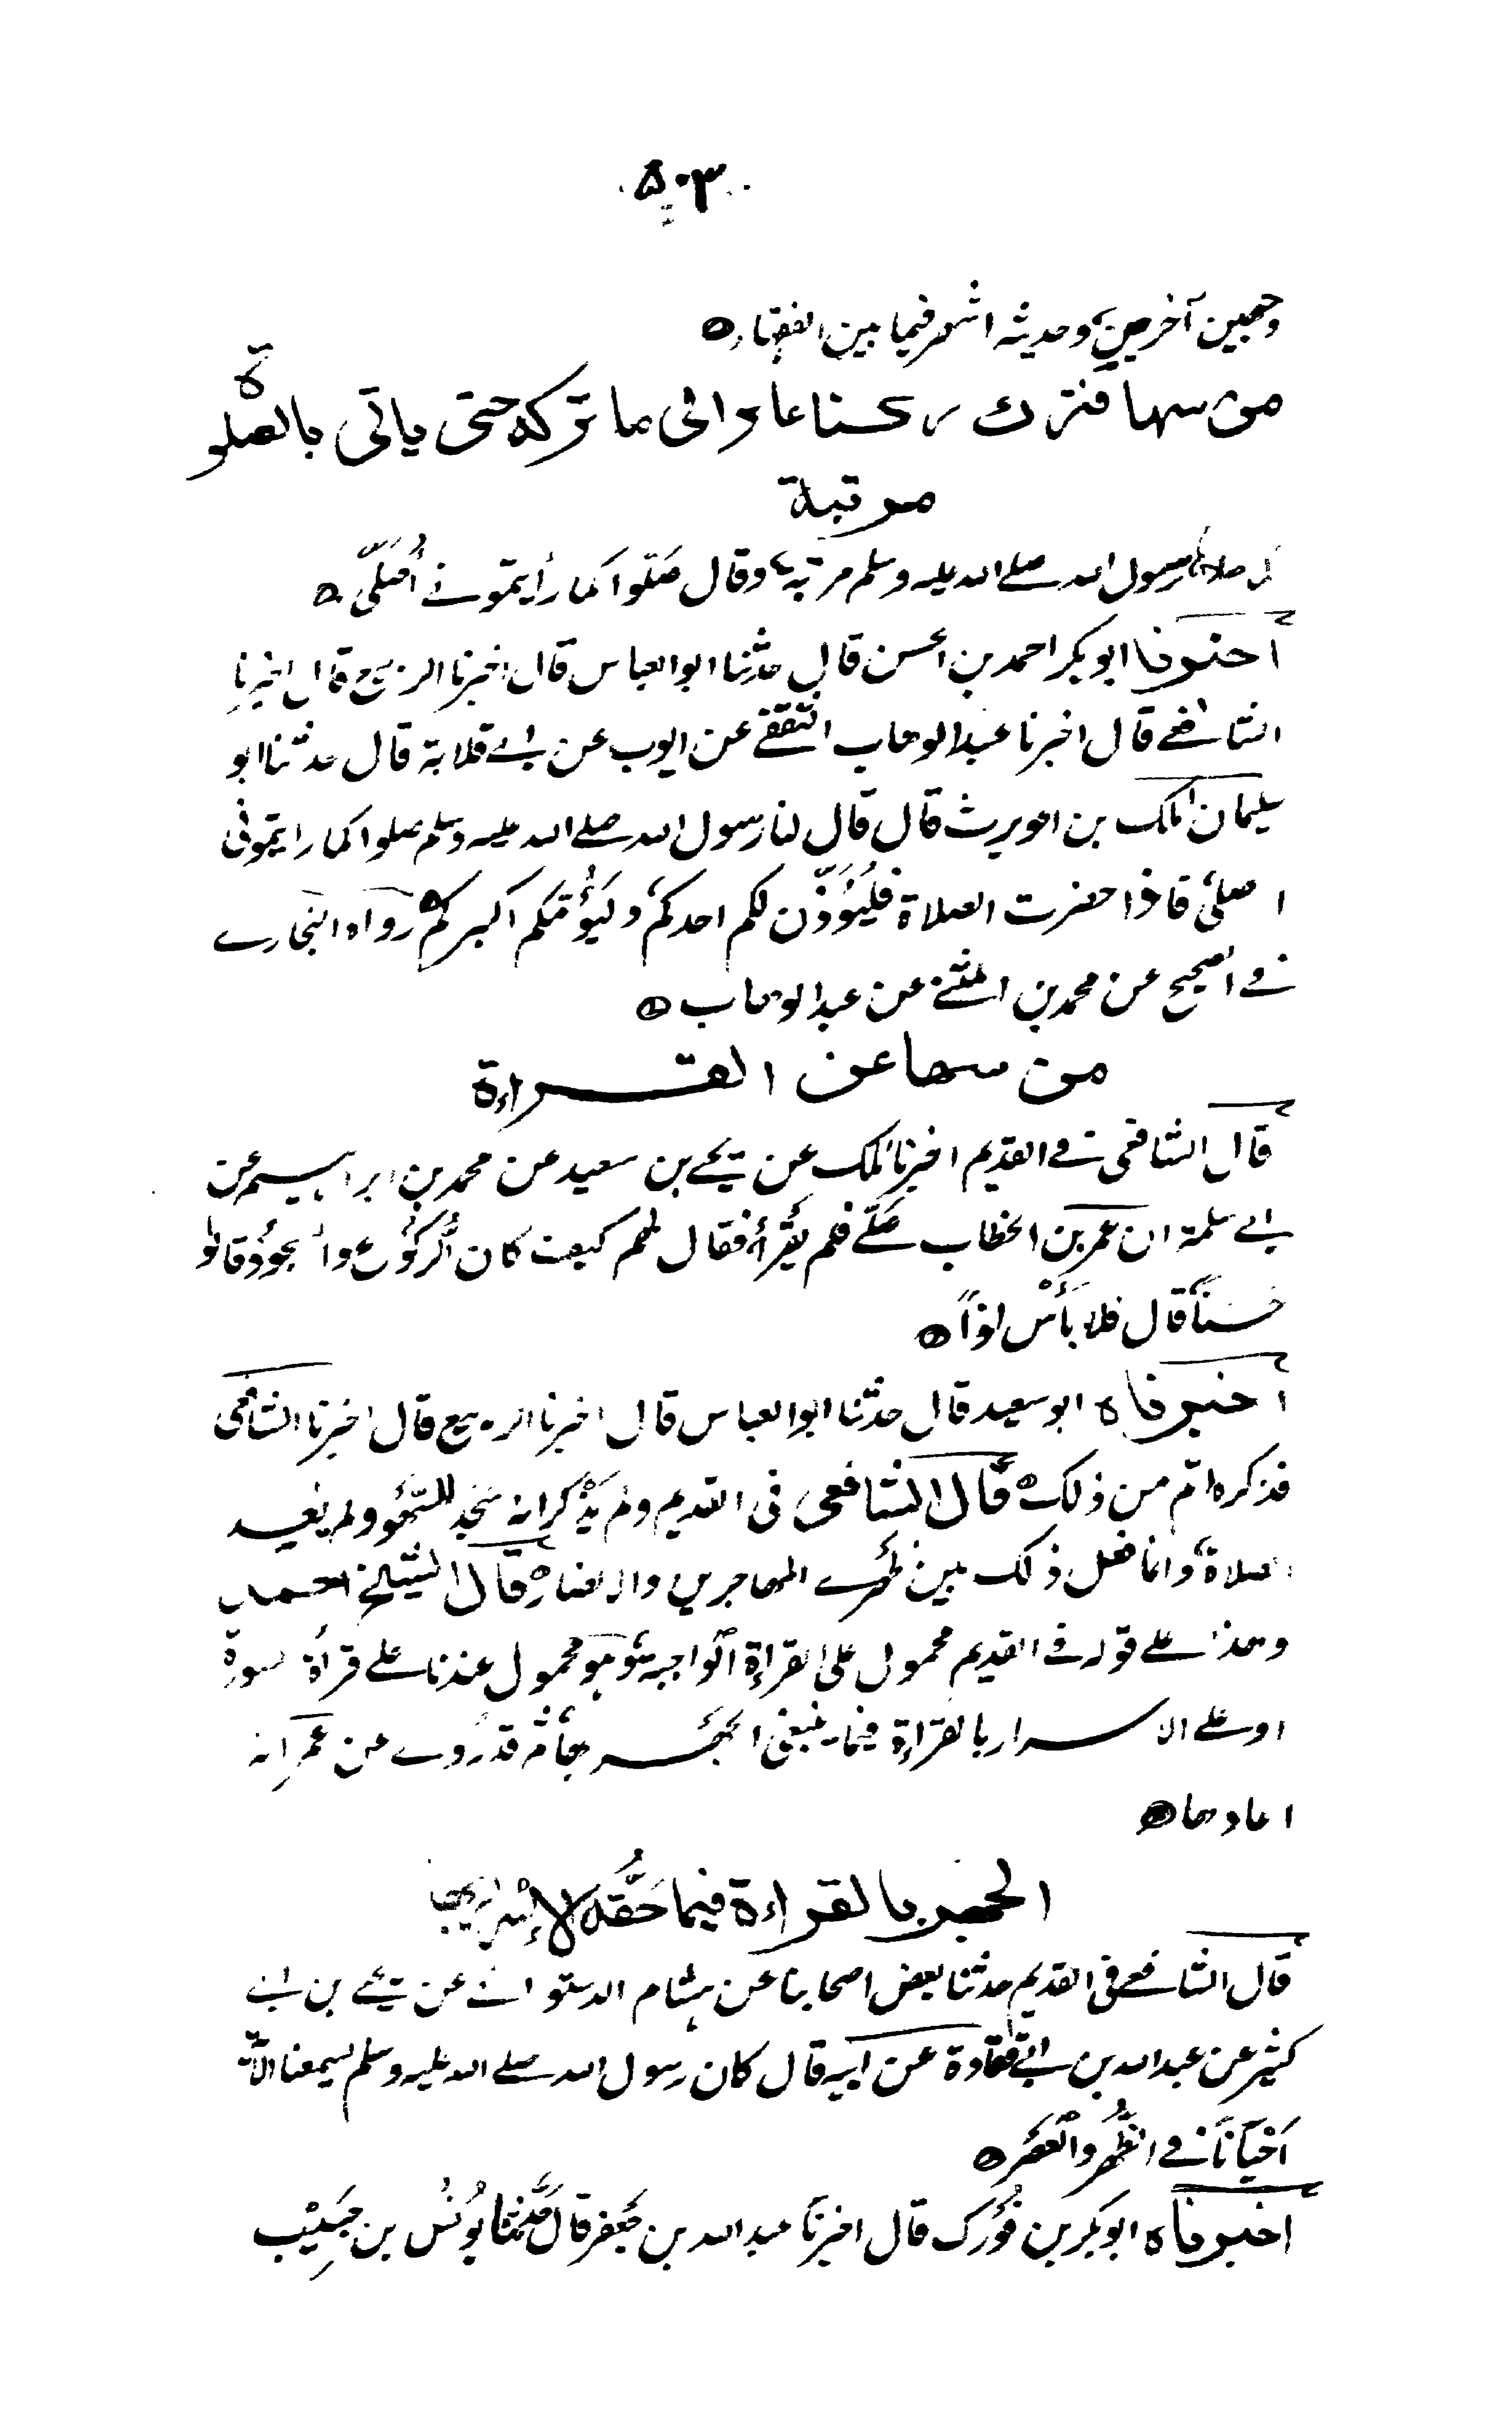 ۵۰۳
وجهين آخرين وحديثه اشهر فيما بين الفقهاء ٥
من سها فترك ركنا عاد الى ما تركه حتى ياتي بالصلوة
مرتبة
رسول الله صلے الله عليه وسلم مرتبة وقال صَلّوا كما رأيتمونے أُصَلّى ٥
اخبرنا ابو بكر احمد بن الحسن قال حدثنا ابو العباس قال اخبرنا الربيع قال اخبرنا
الشافعے قال اخبرنا عبد الوهاب الثقفے عن ايوب عن ابے قلابة قال حدثنا ابو
سليمان ملك بن الحويرث قال قال لنا رسول الله صلے الله عليه وسلم صلوا كما رايتمونى
اصلى فاذا حضرت الصلاة فليُؤَذّن لكم احدكم وليَؤُمّكم اكبركم رواه البخارے
فے الصحيح عن محمد بن المثنے عن عبد الوهاب ٥
من سها عن القراءة
قال الشافعى فے القديم اخبرنا ملك عن يحيے بن سعيد عن محمد بن ابراهيم عن
ابے سلمة ان عمر بن الخطاب صَلّے فلم يَقْرأ فقال لهم كيف كان الرُكوُع والسجوُد قالوا
حسناً قال فلا بَأسْ اذاً ٥
اخبرناه ابو سعيد قال حدثنا ابو العباس قال اخبرنا الربيع قال اخبرنا الشافعى
فذكره اتم من ذلك ٥ قال الشافعى فى القديم ولم يَذْكر انه سَجَد للسَّهْو ولم يعيد
الصلاة وانما فعل ذلك بين ظهرے المهاجرين والانصار ٥ قال الشيخ احمد
وهذا علے قوله فے القديم محمول على القراءة الواجبة وهو محمول عندنا علے قراة سورة
او علے الاسرار بالقراءة فيما ينبغى الجهر بها ثم قد رُوے عن عمر انه
اعادها ٥
الجهر بالقراءة فيما حَقُّه الاِسْرار بها
قال الشافعے فى القديم حدثنا بعض اصحابنا عن هشام الدستوائے عن يحيے بن ابے
كثير عن عبد الله بن ابے قتادة عن ابيه قال كان رسول الله صلے الله عليه وسلم يسمعنا الآية
اَحْيَاناً فے الظُهْر والعَصْر ٥
اخبرناه ابو بكر بن فُوْرك قال اخبرنا عبد الله بن جَعفر قال حَدَّثنا يوُنُس بن حَبِيْب